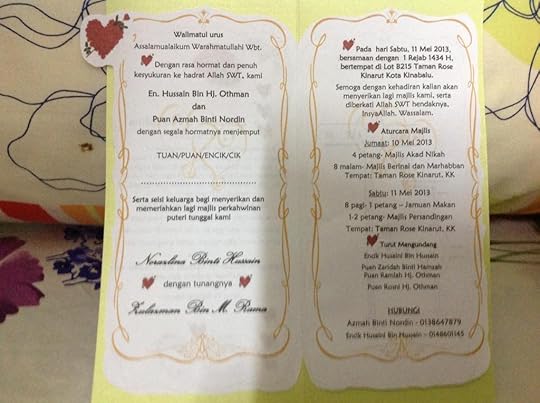 Walimatul urus
Assalamualaikum Warahmatullahi Wbt.
Dengan rasa hormat dan penuh
kesyukuran ke hadrat Allah SWT, kami
En. Hussain Bin Hj. Othman
dan
Puan Azmah Binti Nordin
dengan segala hormatnya menjemput
TUAN/PUAN/ENCIK/CIK
Serta seisi keluarga bagi menyerikan dan
memeriahkan lagi majlis perkahwinan
puteri tunggal kami
Norazlina Binti Hussein
dengan tunangnya
Zulazman Bin M. Rama
Pada hari Sabtu, 11 Mei 2013,
bersamaan dengan 1 Rejab 1434 H,
bertempat di Lot B215 Taman Rose
Kinarut Kota Kinabalu.
Semoga dengan kehadiran kalian akan
menyerikan lagi majlis kami, serta
diberkati Allah SWT hendaknya,
InsyaAllah. Wassalam.
Aturcara Majlis
Jumaat: 10 Mei 2013
4 petang- Majlis Akad Nikah
8 malam- Majlis Berinai dan Marhabban
Tempat: Taman Rose Kinarut, KK
Sabtu: 11 Mei 2013
8 pagi- 1 petang – Jamuan Makan
1-2 petang- Majlis Persandingan
Tempat: Taman Rose Kinarut, KK
Turut Mengundang
Encik Husaini Bin Hussein
Puan Zaridah Binti Hamzah
Puan Ramlah Hj. Othman
Puan Rosni Hj. Othman
HUBUNGI
Azmah Binti Nordin - 0138647879
Encik Husaini Bin Hussein - 0148601145